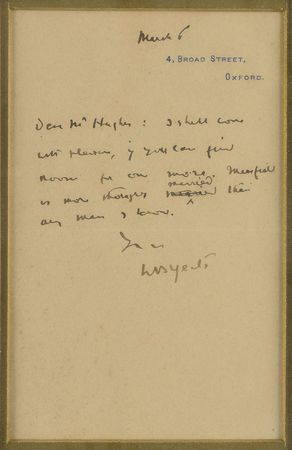 March 6
4, BROAD STREET,
OXFORD.
Dear Mr Hughes: I shall come
with pleasure, if you can find
room for one more. Masefield
is more thoroughly married than
any man I know.
Yrs
WB Yeats